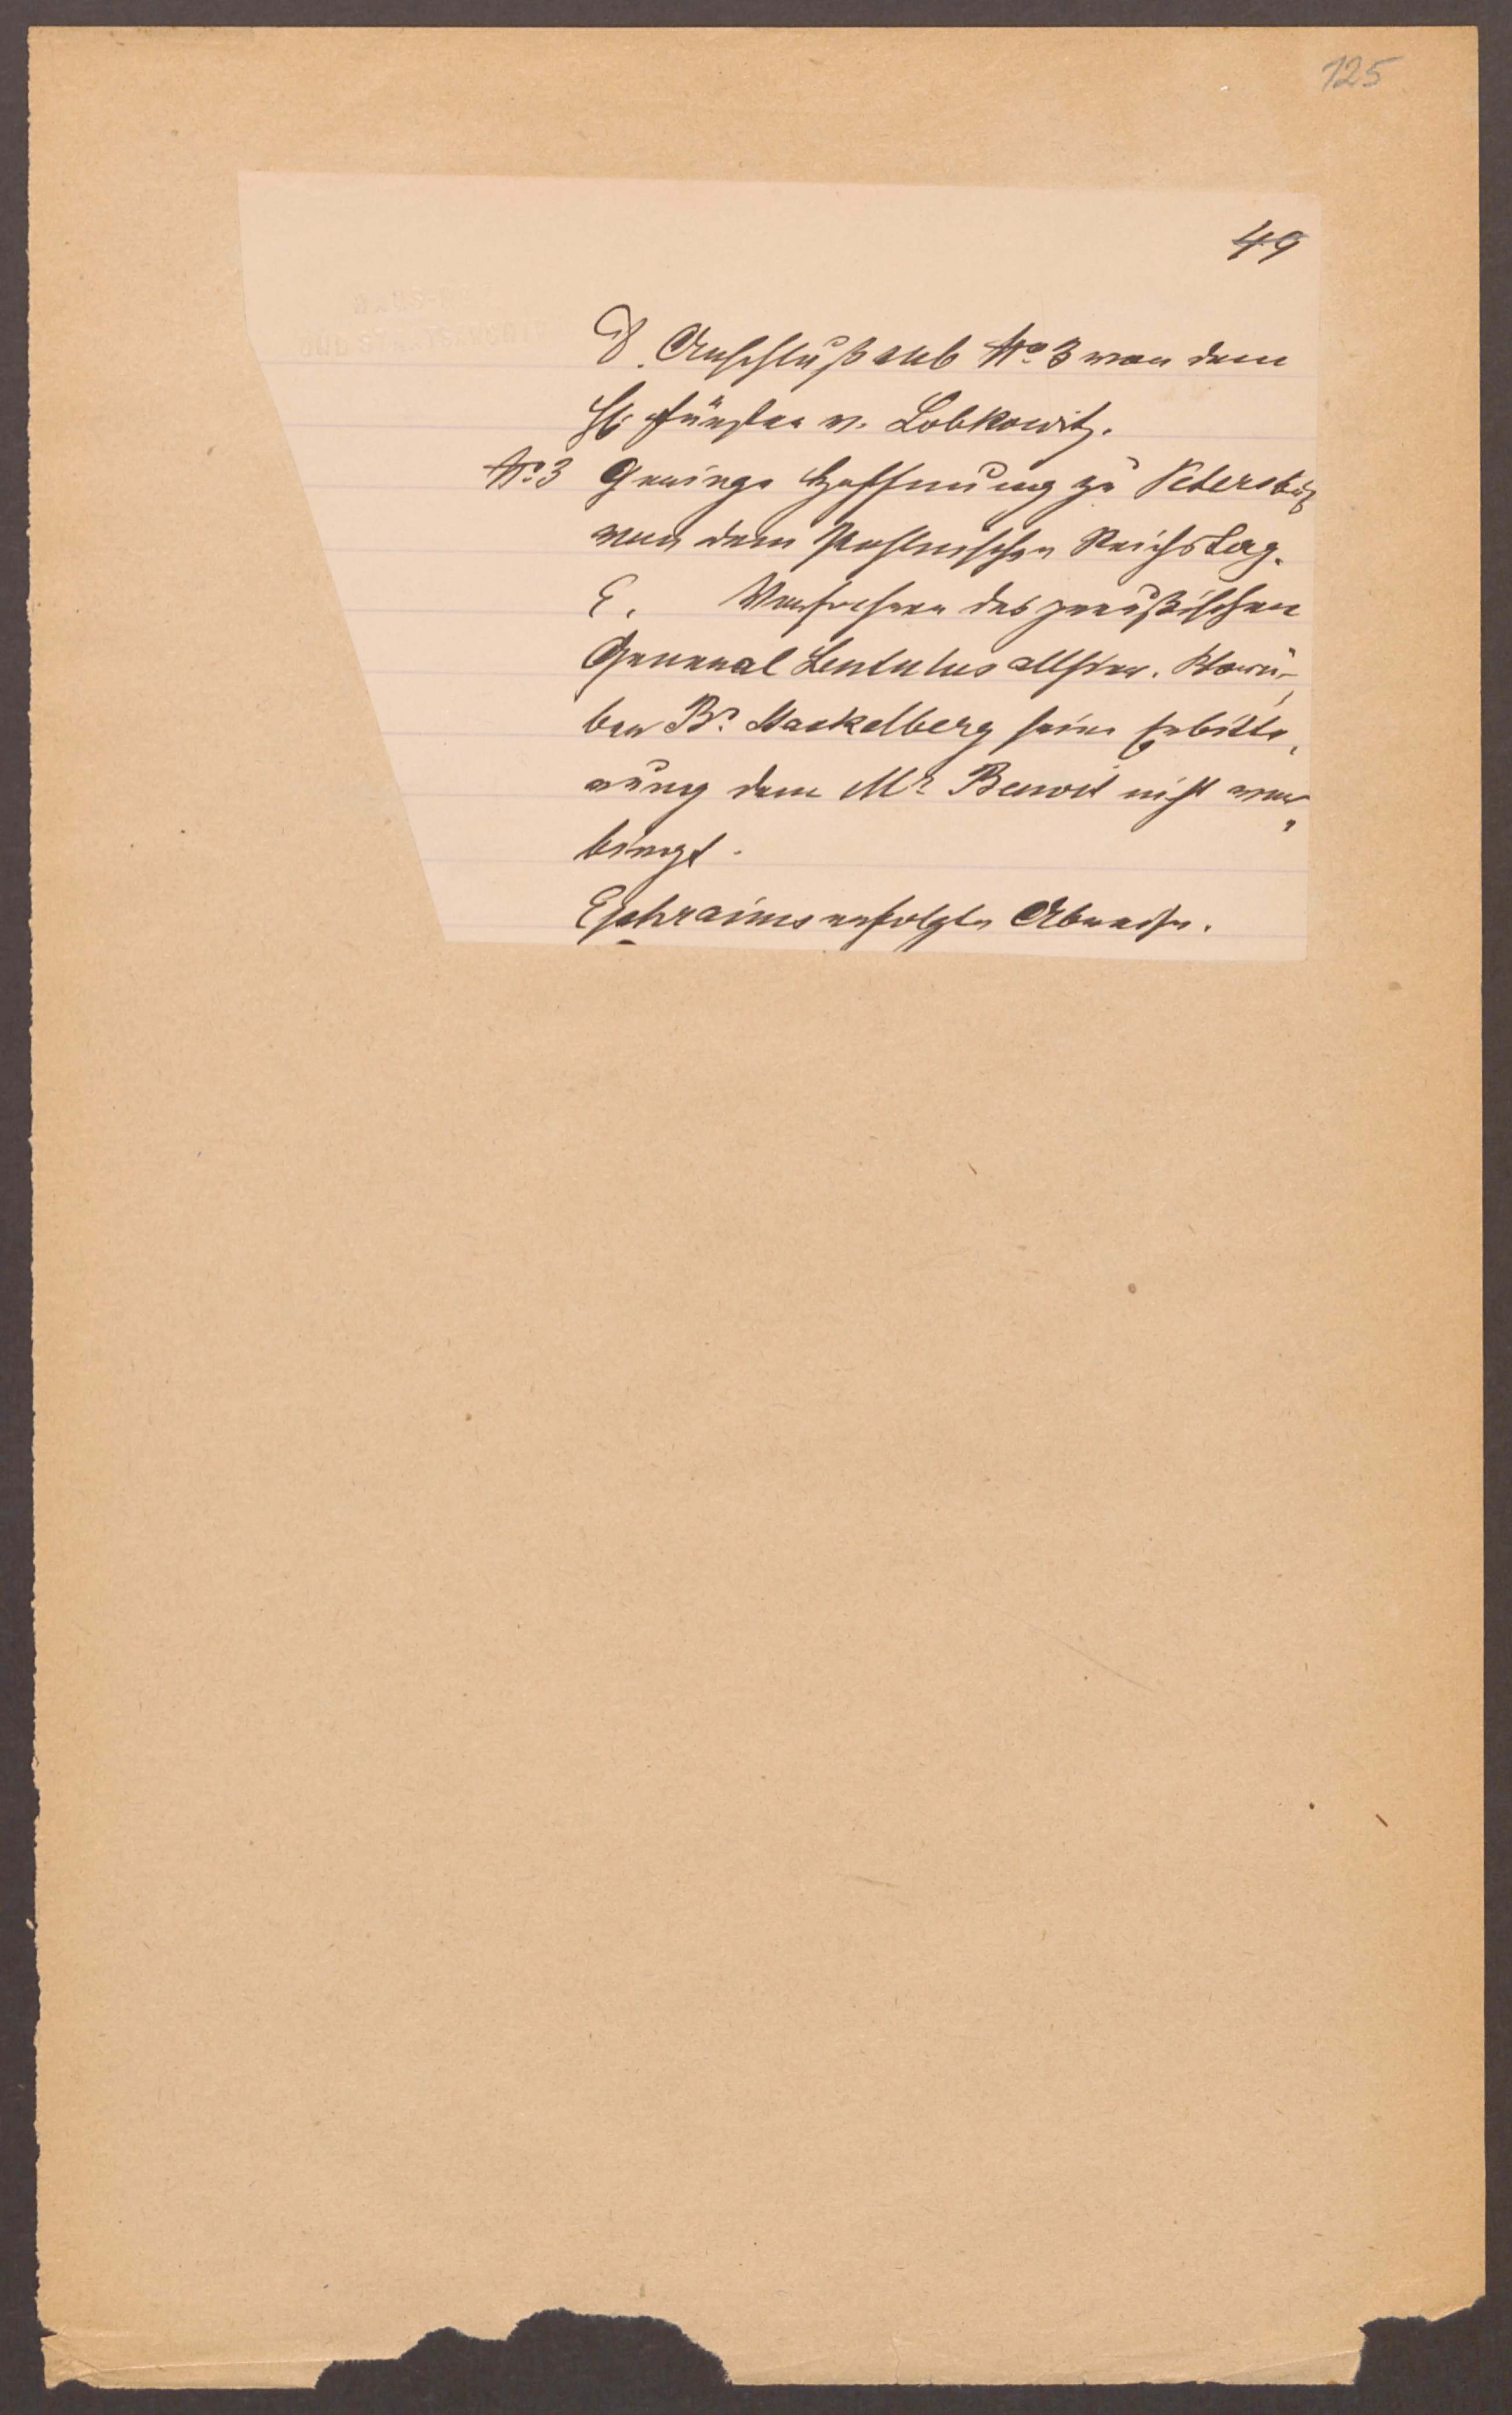 125
49
D. Anschluß sub No 3 von dem
H. Fürsten v. Lobkowitz.
No 3 Geringe Hoffnung zu Petersburg
von dem Pohlnischen Reichstag.
E. Verfahren des preußischen
General Lentulus allhier. Worü-
ber Br. Stackelberg seine Erbitte,
rung dem Mr Benoit nicht ver,
birgt.
Ephraims erfolgte Abreise.